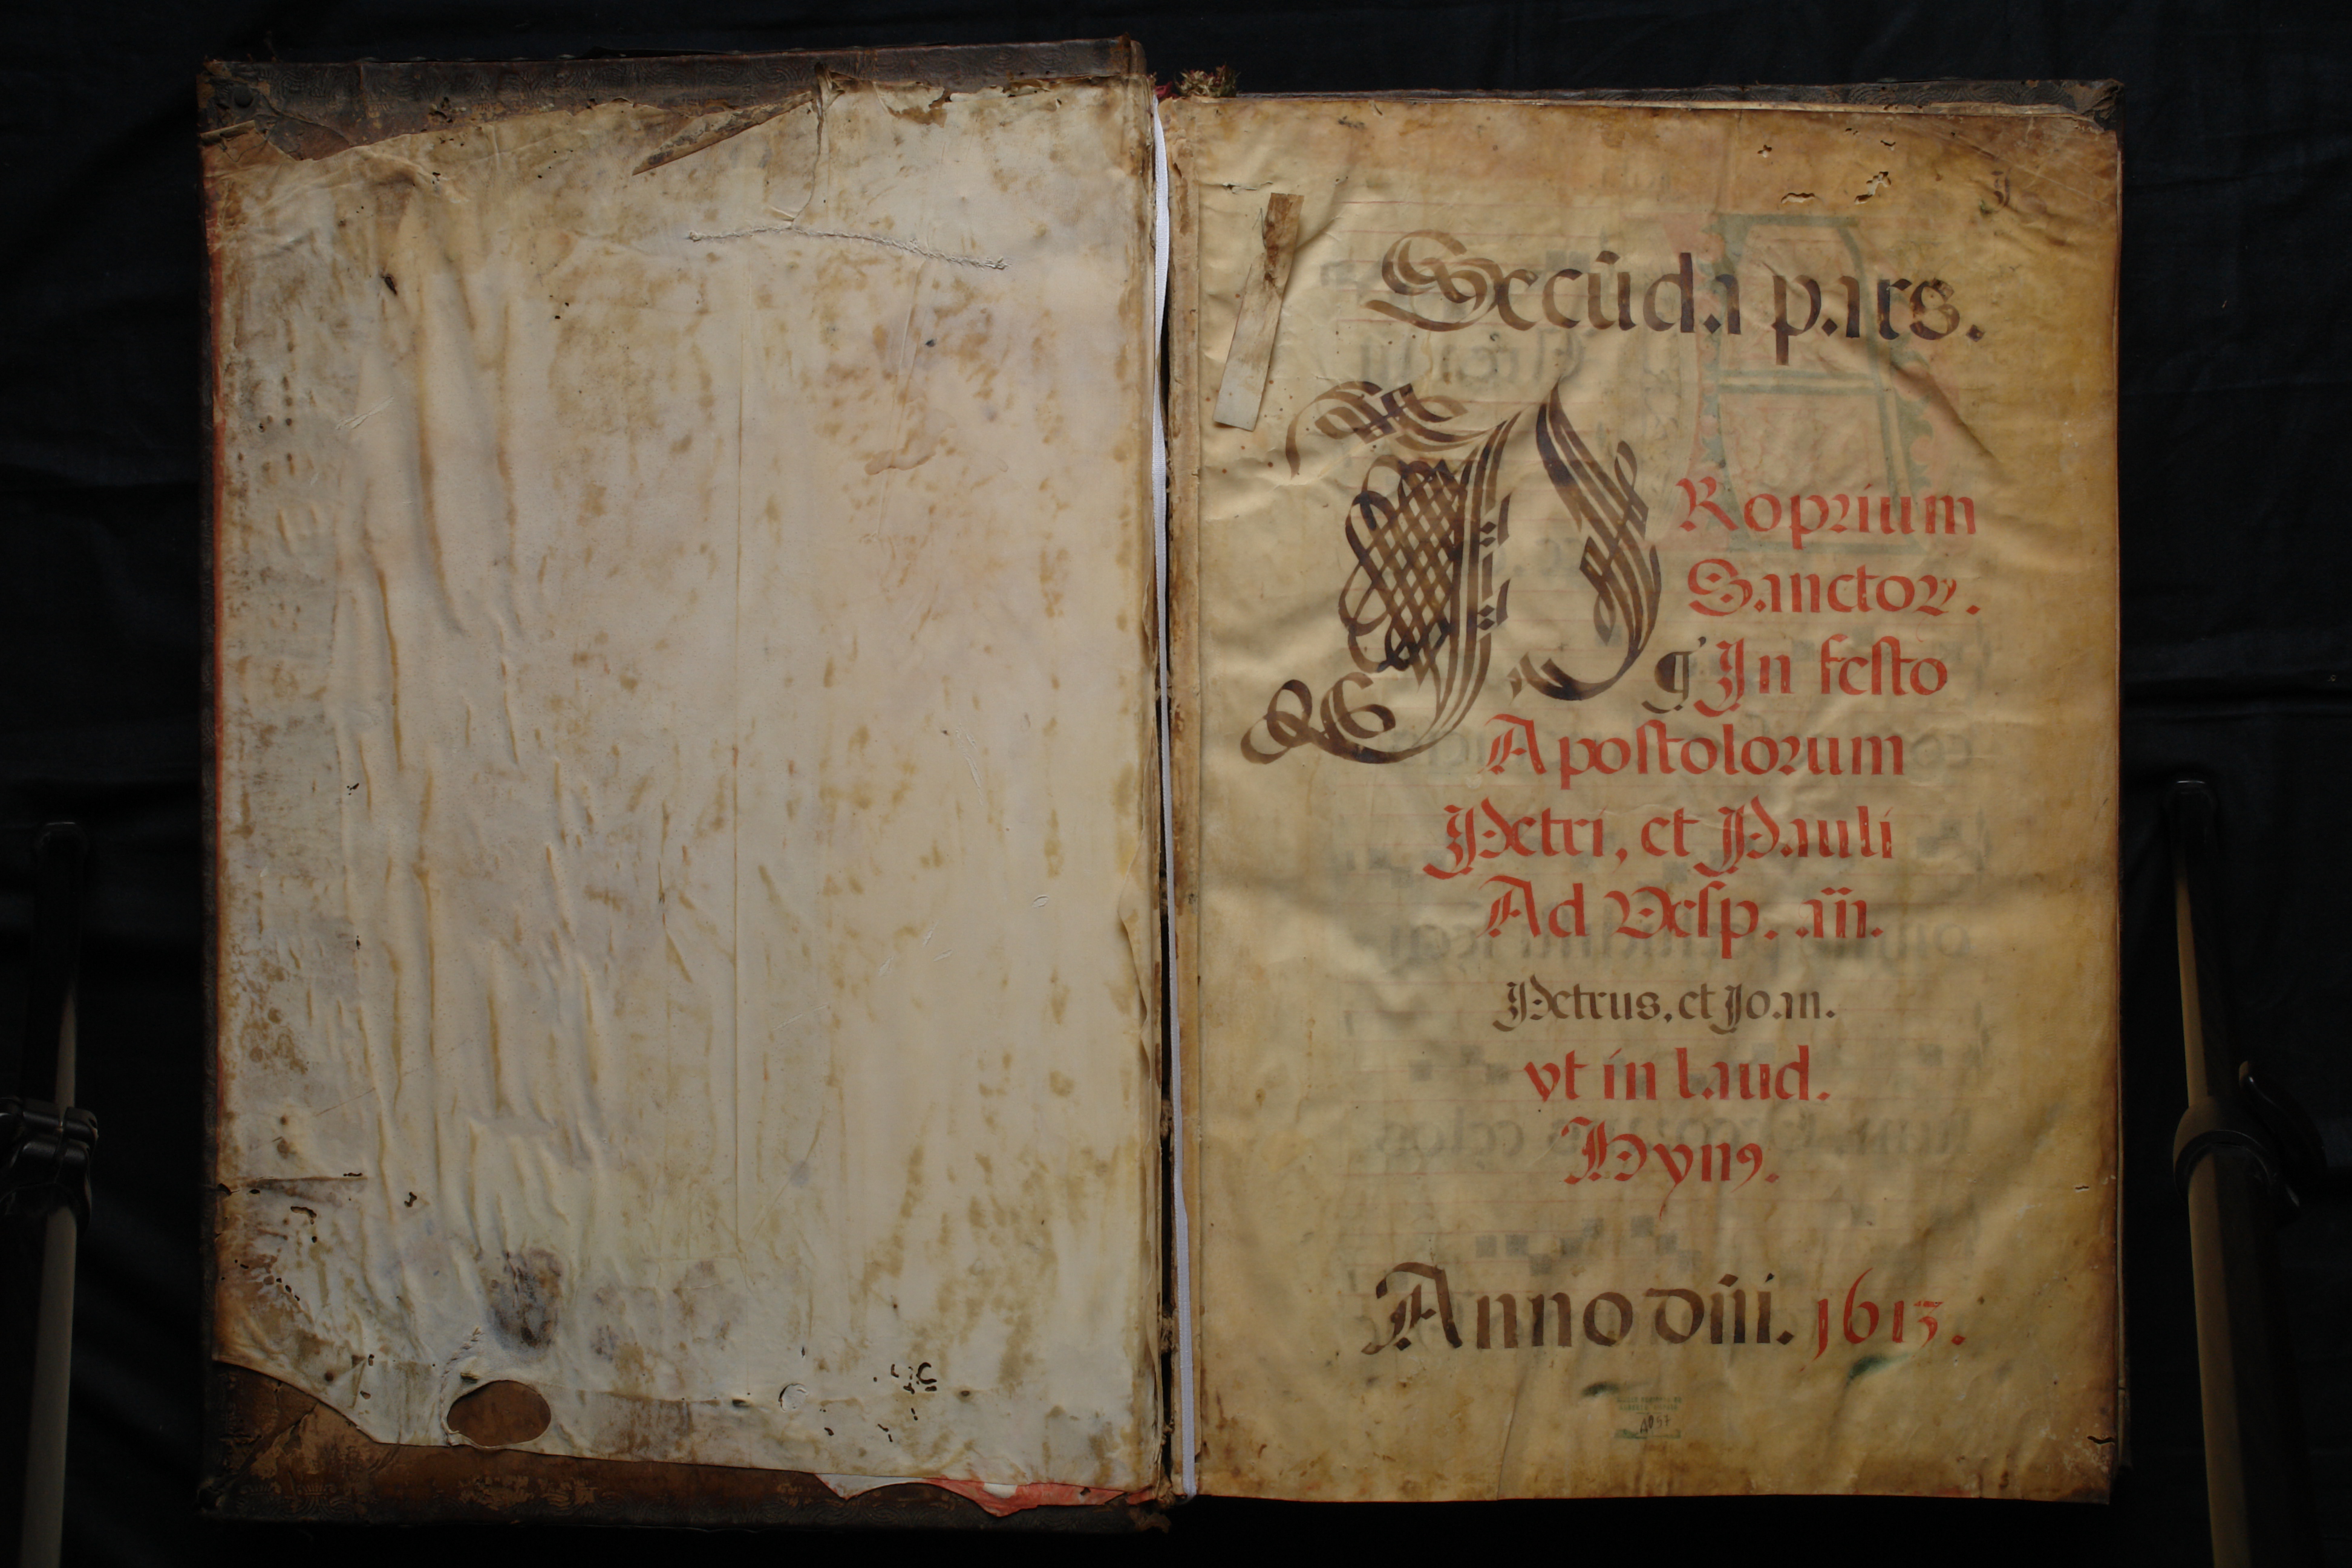 Secūda pars.
PRoprium
Sanctoꝝ.
In festo
Apostolorum
Petri, et Pauli
Ad Vesp. añ.
Petrus, et Joan.
vt in laud.
Hynꝯ.
Anno dn̄i. 1613.